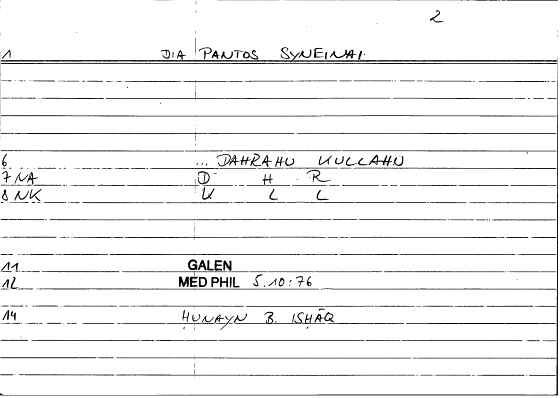 2
1 DIA PANTOS SYNEINAI
6 ... DAHRAHU KULLAHU
7 NA D H R
8 NK K L L
11 GALEN
12 MED PHIL 5.10:76
14 ḤUNAYN B. ISḤĀQ